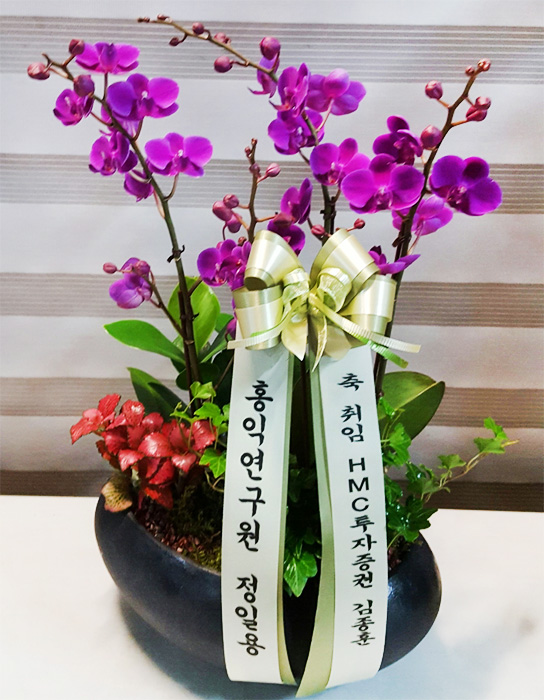 홍익연구원 정일용
축 취임 HMC투자증권 김종훈